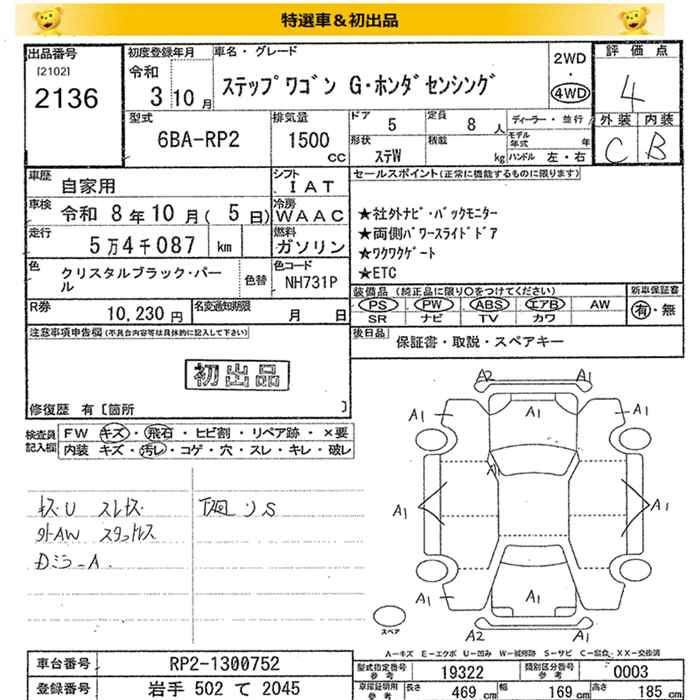 特選車＆初出品
出品番号
[2102]
2136
初度登録年月
令和
3 10 月
車名・グレード
ステップワゴン G・ホンダセンシング
2WD
・
4WD
評価点
4
外装 内装
C B
型式
6BA-RP2
排気量
1500
cc
ドア
5
定員
8 人
ディーラー・並行
形状
ステW
積載
kg
モデル年式 年
ハンドル 左・右
車歴
自家用
シフト
IAT
車検
令和 8 年 10 月（ 5 日）
冷房
WAAC
走行
5万4千087 km
燃料
ガソリン
色
クリスタルブラック・パール
色替
色コード
NH731P
R券
10,230 円
名変通知期限
月 日
セールスポイント(正常に機能するものに限ります)
★社外ナビ・バックモニター
★両側パワースライドドア
★ワクワクゲート
★ETC
装備品（純正品に限り○をつけてください）
PS PW ABS エアB AW
SR ナビ TV カワ
新車保証書
有・無
後日品
保証書・取説・スペアキー
注意事項申告欄(不具合内容等は具体的に記入して下さい)
初出品
修復歴 有〔箇所 〕
検査員記入欄
FW キズ・飛石・ヒビ割・リペア跡・×要
内装 キズ・汚レ・コゲ・穴・スレ・キレ・破レ
キズU スレキズ
外AW スタッドレス
Dミラ-A
下廻りS
A2 A1
A1 A1 A1
A1
A1 A1
A1 A1 A1
A2 A1
スペア
A-キズ E-エクボ U-凹み W-補修跡 S-サビ C-腐食・XX-交換済
車台番号
RP2-1300752
登録番号
岩手 502 て 2045
型式指定番号
参考
19322
類別区分番号
参考
0003
車庫証明用
参考
長さ 469 cm
幅 169 cm
高さ 185 cm